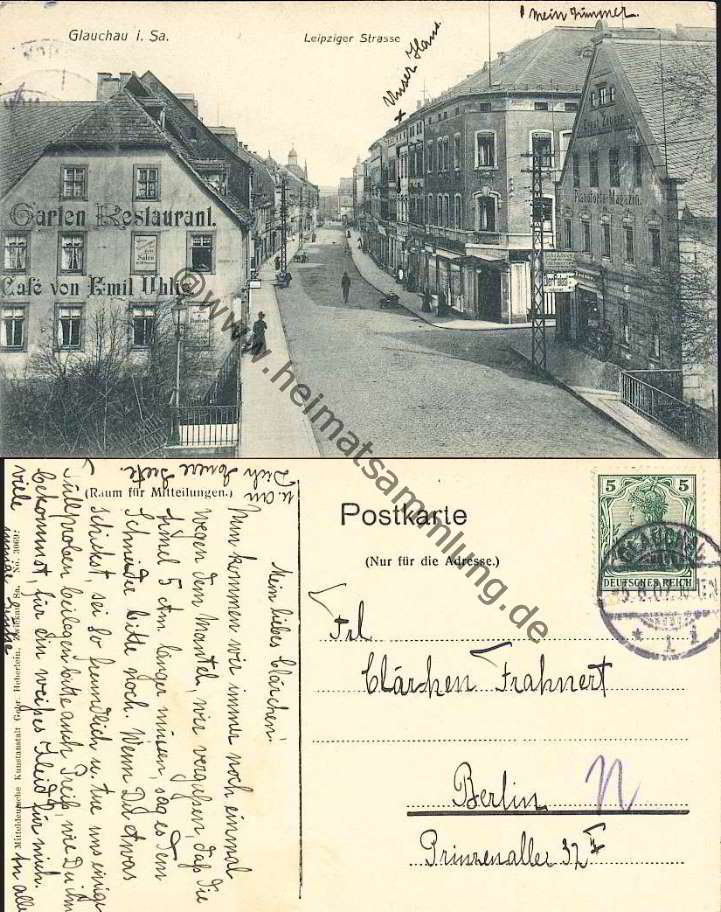 ! mein Zimmer.
Glauchau i. Sa.
Leipziger Strasse
x Unser Haus
Garten Restaurant.
Café von Emil Uhlig
Salon
Pianoforte-Magazin.
© www.heimatsammlung.de
(Raum für Mitteilungen.)
Mein liebes Clärchen!
Nun kommen wir immer noch einmal
wegen dem Mantel, wir vergaßen, daß die
Ärmel 5 ctm länger müssen, sag es dem
Schneider bitte noch. Wenn Du etwas
schickst, sei so freundlich u. tue uns einige
Tüllproben beilegen bitte auch Preis, wie Du ihn
bekommst, für ein weißes Kleid für mich.
viele
innige Grüße
An alle
u. an
Dich
Mitteldeutsche Kunstanstalt Gebr. Heberlein, Zwickau Sa. No. 3069:
Postkarte
(Nur für die Adresse.)
5 5
DEUTSCHES REICH
GLAUCHAU
* 1 i
Frl
Clärchen Frahnert
Berlin N
Prinzenallee 32 I